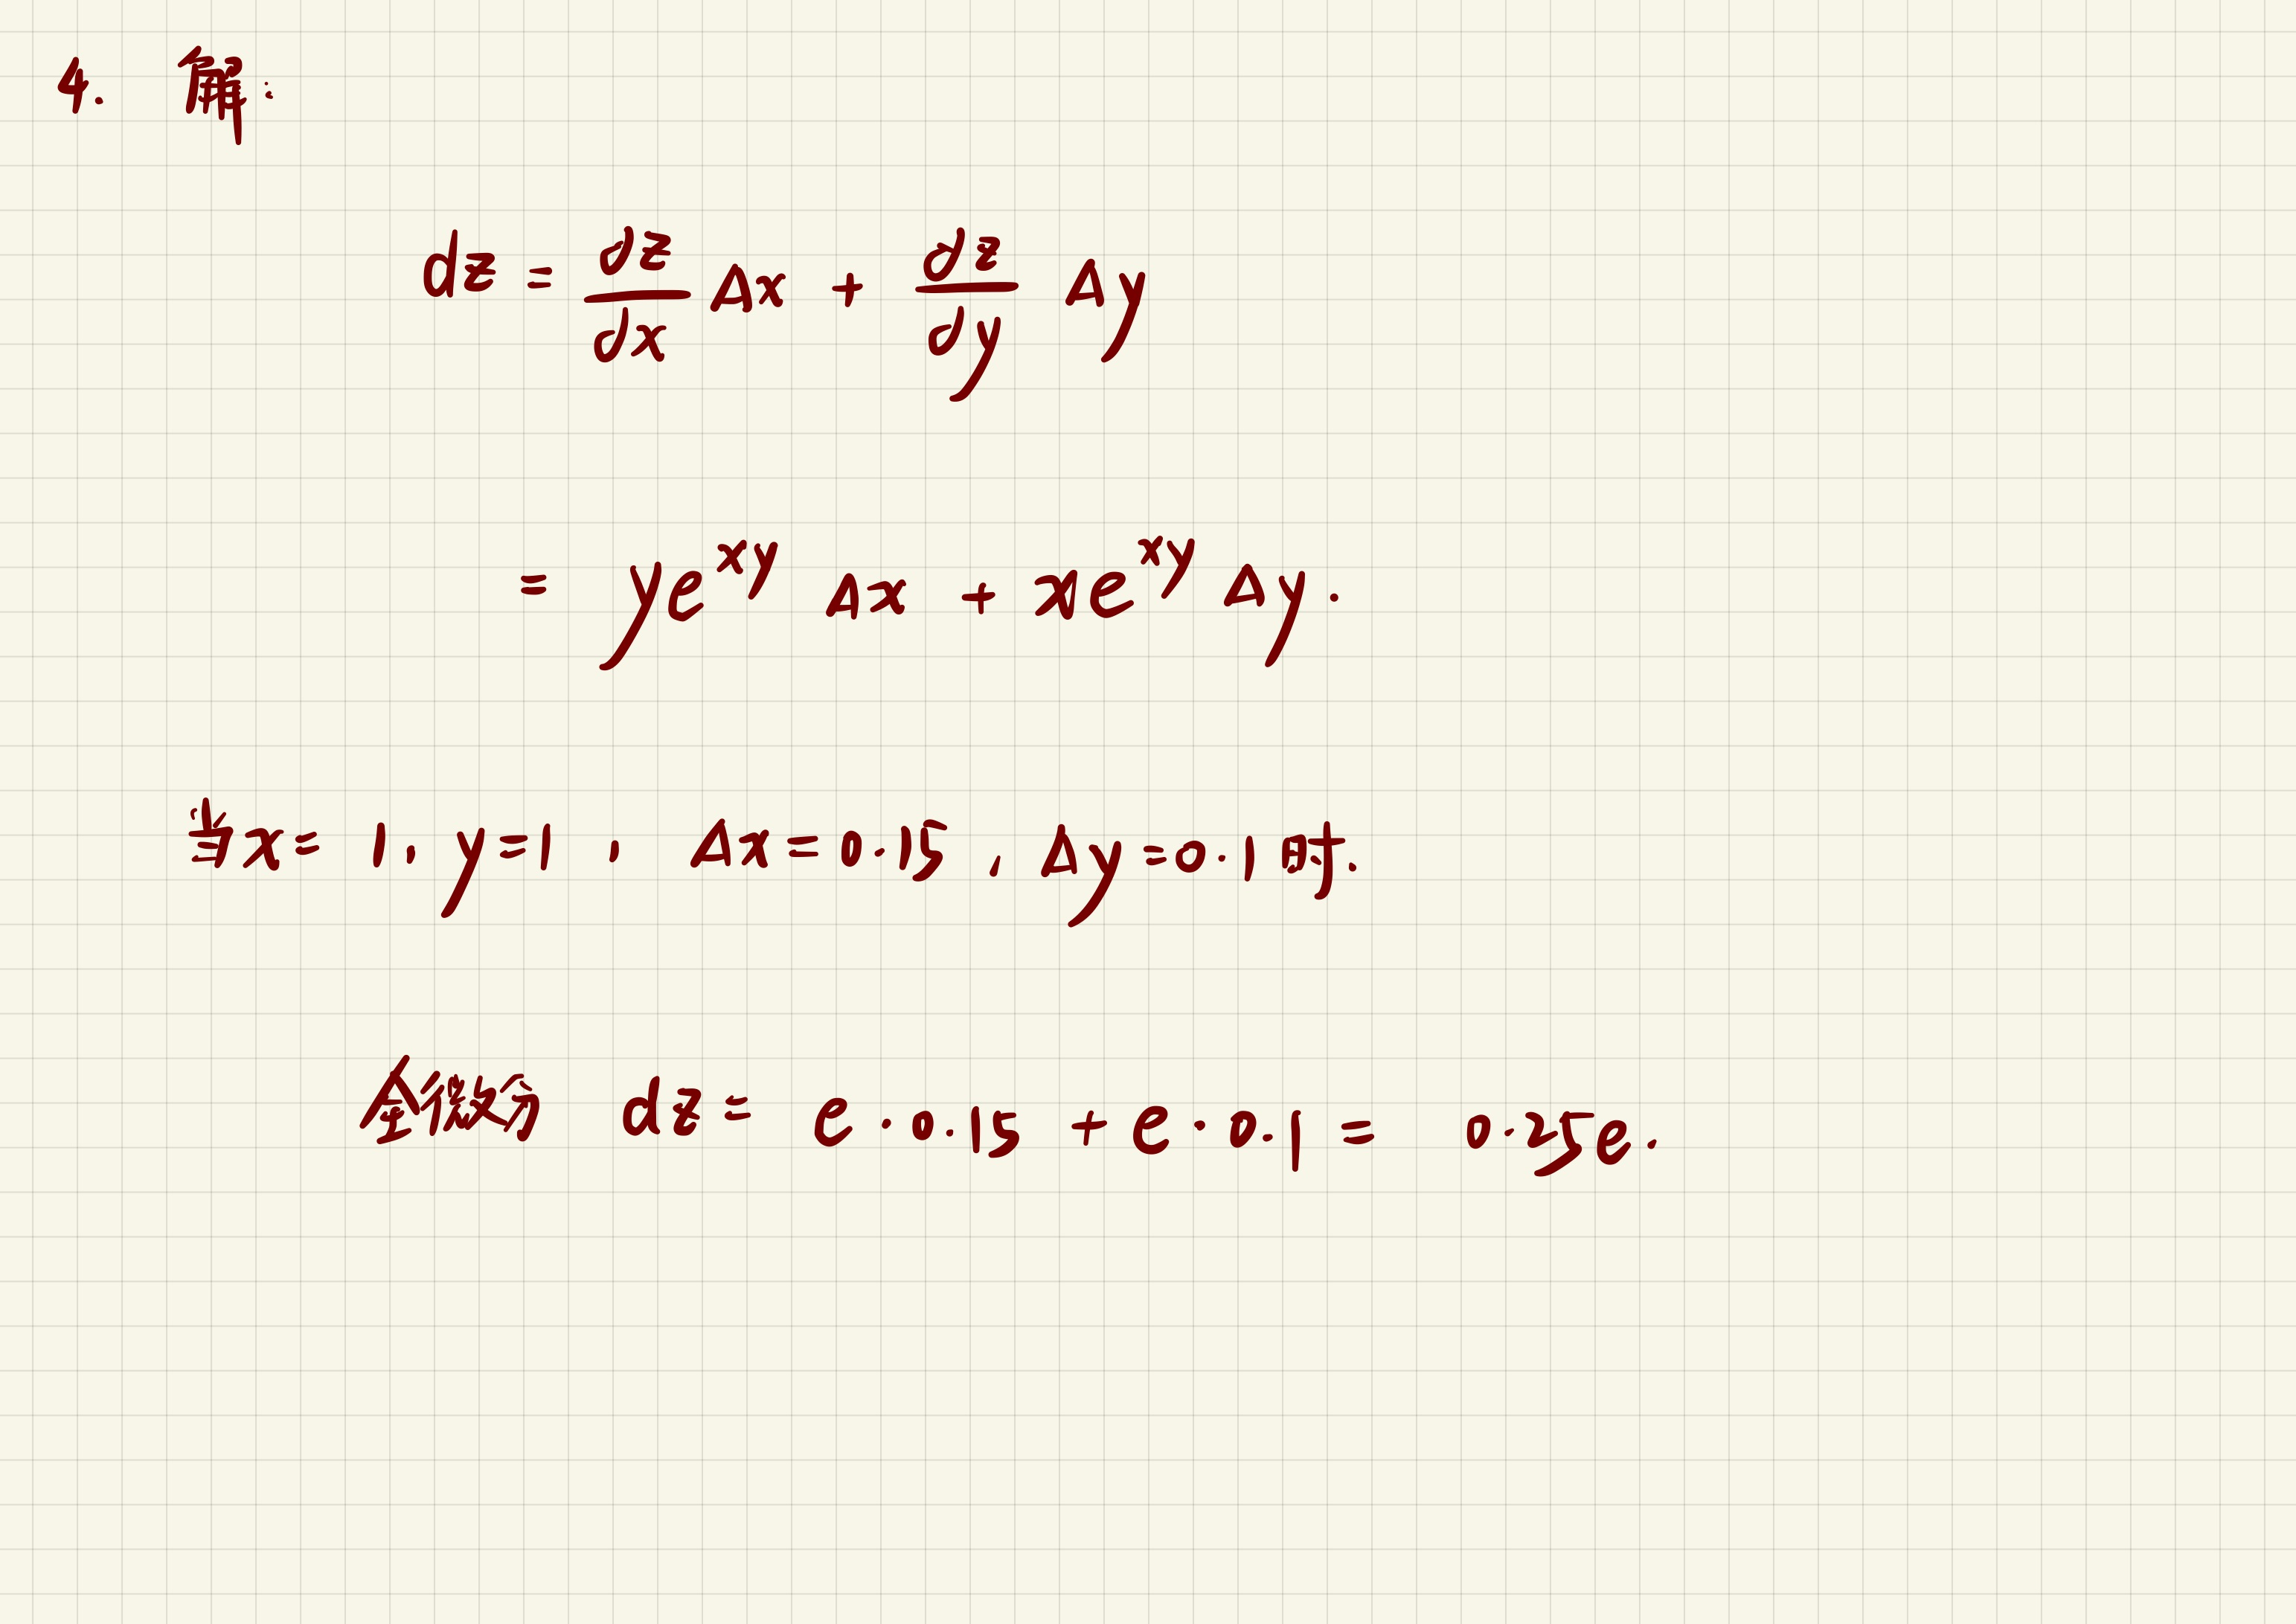 4. 解:
dz = ∂z/∂x Δx + ∂z/∂y Δy
= ye^{xy} Δx + xe^{xy} Δy.
当x = 1, y=1, Δx=0.15, Δy=0.1时.
全微分 dz = e·0.15 + e·0.1 = 0.25e.